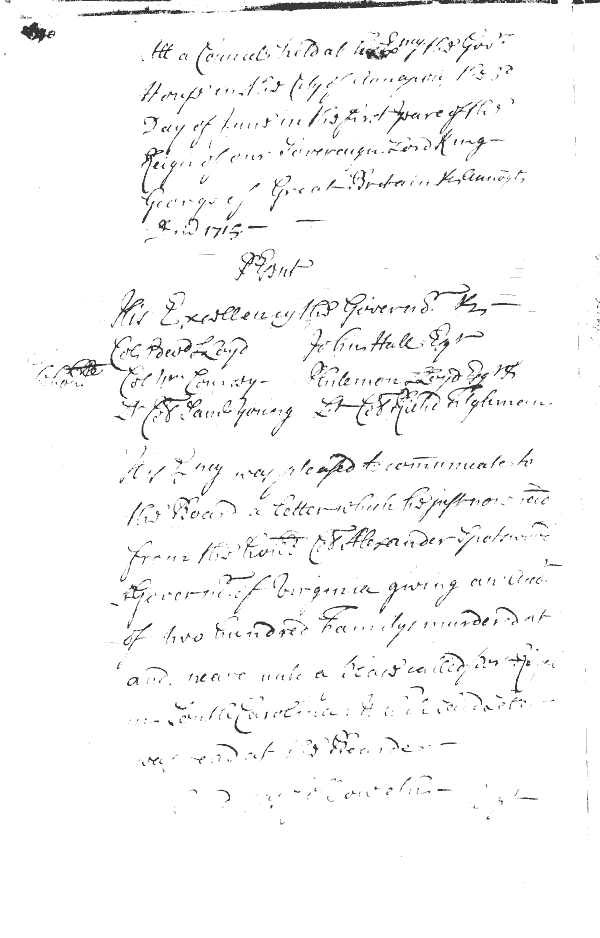 Att a Councel held at his Exncy the Govrs
House in the City of Annapolis the 3d
Day of June in the first yeare of the
Reign of our Sovereign Lord King
George of Great Brittain &c Annoq
1715
Psent
His Excellency the Governor &c
Col Edwd Lloyd John Hall Esqr
The honble Col Wm Coursey Philemon Lloyd Esqrs
Lt Col Saml Young Lt Col Richd Tilghman
His Exncy was pleased to comunicate to
the Board a Letter which he just now
from the honble Col Alexander Spotswood
Governr of Virginia giving an Acct
of two hundred Familys murdered at
and neare unto a place called
in South Carolina
was read at the Board